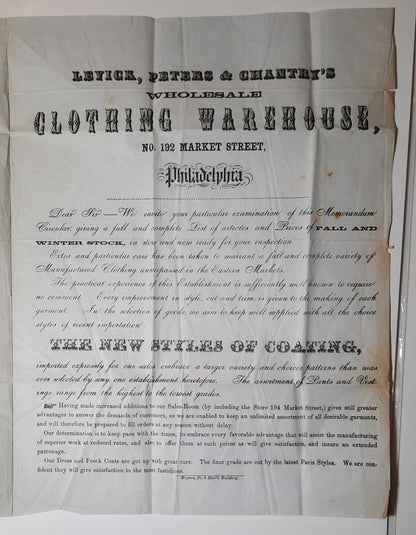 LEVICK, PETERS & CHANTRY'S
WHOLESALE
CLOTHING WAREHOUSE,
NO. 192 MARKET STREET,
Philadelphia
Dear Sir.—We invite your particular examination of this Memorandum
Circular, giving a full and complete List of articles and Prices of FALL AND
WINTER STOCK, in store and now ready for your inspection.
Extra and particular care has been taken to warrant a full and complete variety of
Manufactured Clothing unsurpassed in the Eastern Markets.
The practical experience of this Establishment is sufficiently well known to require
no comment. Every improvement in style, cut and trim, is given to the making of each
garment. In the selection of goods, we aim to keep well supplied with all the choice
styles of recent importation.
THE NEW STYLES OF COATING,
imported expressly for our sales, embrace a larger variety and choicer patterns than was
ever selected by any one establishment heretofore. The assortment of Pants and Vest-
ings range from the highest to the lowest grades.
☞ Having made increased additions to our Sales-Room (by including the Store 194 Market Street,) gives still greater
advantages to answer the demands of customers, as we are enabled to keep an unlimited assortment of all desirable garments,
and will therefore be prepared to fill orders at any season without delay.
Our determination is to keep pace with the times, to embrace every favorable advantage that will assist the manufacturing
of superior work at reduced rates, and also to offer them at such prices as will give satisfaction, and insure an extended
patronage.
Our Dress and Frock Coats are got up with great care. The finer grade are cut by the latest Paris Styles. We are con-
fident they will give satisfaction to the most fastidious.
Bryson, Pr. 6 Hart's Building.